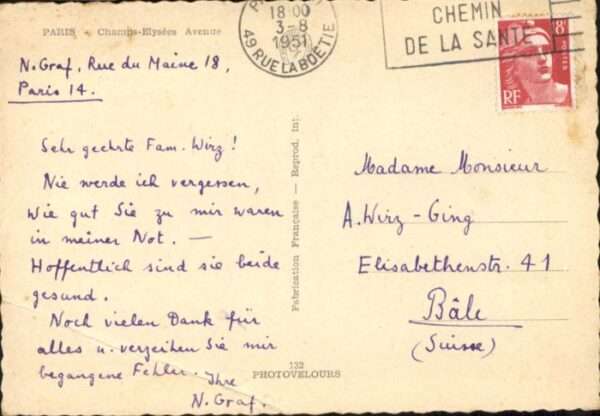 PARIS - Champs-Elysées Avenue
18 00
3-8
1951
49 RUE LA BOETIE
CHEMIN
DE LA SANTE
8F
POSTES
RF
N. Graf, Rue du Maine 18,
Paris 14.
Sehr geehrte Fam. Wirz!
Nie werde ich vergessen,
wie gut Sie zu mir waren
in meiner Not. —
Hoffentlich sind sie beide
gesund.
Noch vielen Dank für
alles u. verzeihen Sie mir
begangene Fehler.
Ihre
N. Graf.
Fabrication Française — Reprod. int.
132
PHOTOVELOURS
Madame Monsieur
A. Wirz - Ging
Elisabethenstr. 41
Bâle
(Suisse)